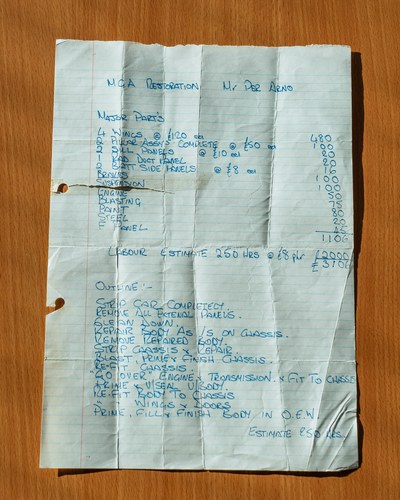 MGA RESTORATION Mr PER ARNO
MAJOR PARTS
4 WINGS @ £120 ea 480
2 PILLAR ASSY'S COMPLETE @ £50 ea 100
2 SILL PANELS @ £10 ea 20
1 RAD DUCT PANEL
2 BATT SIDE PANELS @ £8 ea 16
BRAKES 100
SUSPENSION 100
ENGINE
BLASTING
PAINT
STEEL
F PANEL
1106
LABOUR ESTIMATE 250 HRS @ £8 phr £2000
£3106
OUTLINE :-
STRIP CAR COMPLETELY.
REMOVE ALL EXTERNAL PANELS.
CLEAN DOWN.
REPAIR BODY AS IS ON CHASSIS.
REMOVE REPAIRED BODY.
STRIP CHASSIS & REPAIR.
BLAST, PRIME & FINISH CHASSIS.
RE-FIT CHASSIS.
GO OVER ENGINE & TRANSMISSION, & FIT TO CHASSIS
PRIME & U/SEAL U/BODY.
RE-FIT BODY TO CHASSIS
WINGS & DOORS
PRIME, FILL & FINISH BODY IN O.E.W.
ESTIMATE 250 HRS.